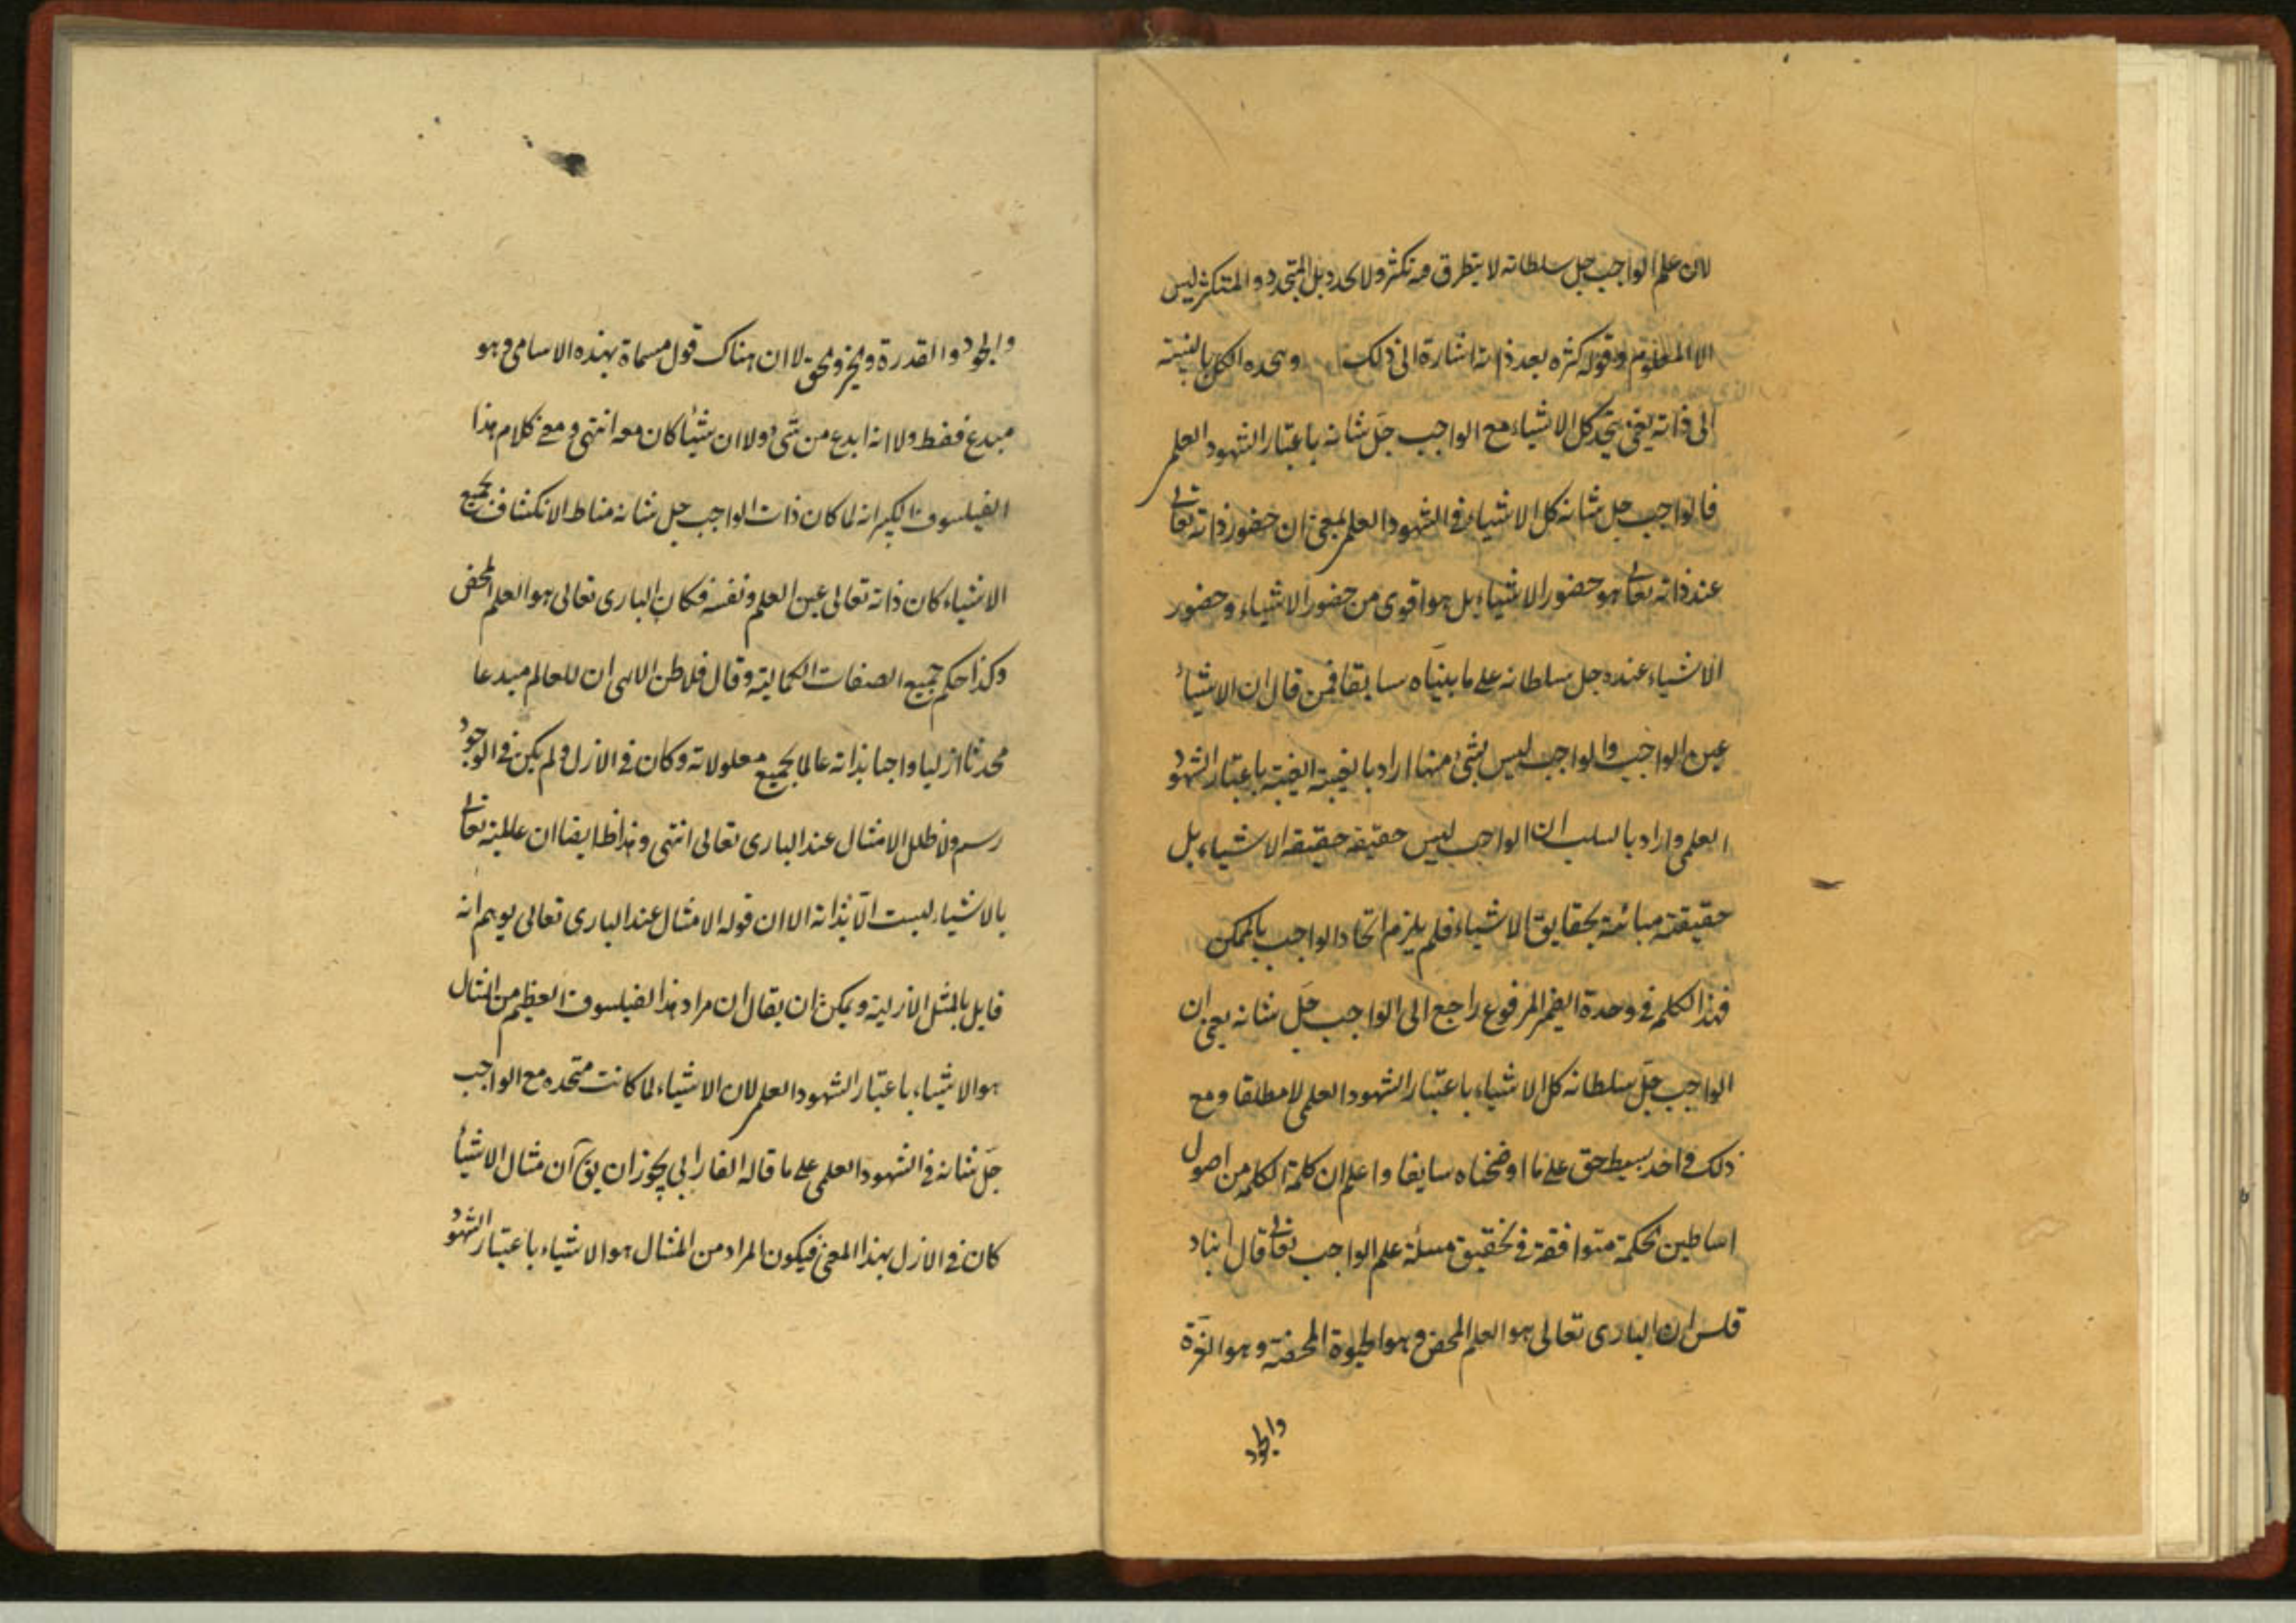 لان علم الواجب جل سلطانه لا يتطرق فيه تكثر ولا تجدد بل المتجدد والمتكثر ليس
الا المعلوم وقوله كثره بعد ذاته اشارة الى ذلك ويتحده الكل بالنسبة
الى ذاته يعني يتحد كل الاشياء مع الواجب جل شانه باعتبار الشهود العلمي
فالواجب جل شانه كل الاشياء في الشهود العلمي بمعنى ان حضور ذاته تعالى
عند ذاته تعالى هو حضور الاشياء بل هو اقوى من حضور الاشياء وحضور
الاشياء عنده جل سلطانه على ما بيناه سابقا فمن قال ان الاشياء
عين الواجب والواجب ليس بشيء منها اراد بالعينية العينية باعتبار الشهود
العلمي واراد بالسلب ان الواجب ليس حقيقة حقيقة الاشياء بل
حقيقته مبائنة بحقايق الاشياء فلم يلزم اتحاد الواجب بالممكن
فهذا الكلم في وحدة الضمير المرفوع راجع الى الواجب جل شانه يعني ان
الواجب جل سلطانه كل الاشياء باعتبار الشهود العلمي لا مطلقا ومع
ذلك في احد بسيط حق على ما اوضحناه سابقا واعلم ان كلمة الكلمه من اصول
اساطين الحكمة متوافقة في تحقيق مسئلة علم الواجب تعالى قال انباد
قلس ان الباري تعالى هو العلم المحض وهو الحيوة المحضة وهو العزة
والجود
والجود والقدرة والخير والحق لا ان هناك قول مسماة بهذه الاسامي وهو
مبدع فقط ولا انه ابدع من شيء ولا ان شيئا كان معه انتهى ومعنى كلام هذا
الفيلسوف الكبير انه لما كان ذات الواجب جل شانه مناط الانكشاف بجميع
الاشياء كان ذاته تعالى عين العلم ونفسه فكان الباري تعالى هو العلم المحض
وكذا حكم جميع الصفات الكمالية وقال فلاطن الالهي ان للعالم مبدعا
محدثا ازليا واجبا بذاته عالما بجميع معلولاته وكان في الازل ولم يكن في الوجود
رسم ولا ظلل الا مثال عند الباري تعالى انتهى وهذا ظ ايضا ان عالميته تعالى
بالاشياء ليست الا بذاته الا ان قوله الا مثال عند الباري تعالى يوهم انه
قايل بالمثل الازلية ويمكن ان يقال ان مراد هذا الفيلسوف العظيم من المثال
هو الاشياء باعتبار الشهود العلمي لان الاشياء لما كانت متحده مع الواجب
جل شانه في الشهود العلمي على ما قاله الفارابي يجوز ان يق ان مثال الاشياء
كان في الازل بهذا المعنى فيكون المراد من المثال هو الاشياء باعتبار الشهود